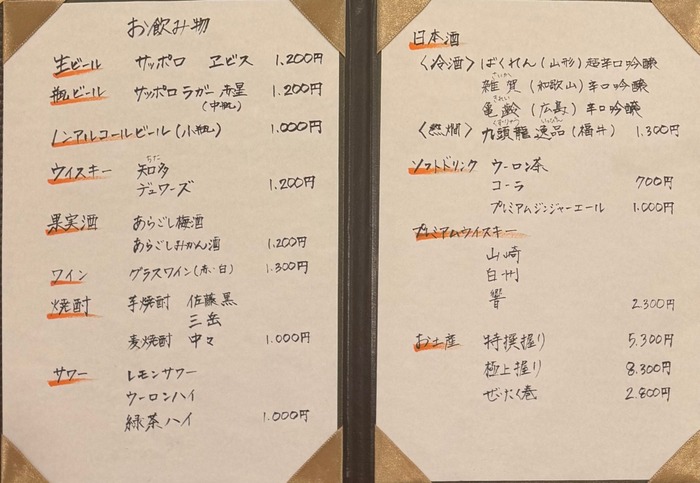 お飲み物
生ビール サッポロ ヱビス 1.200円
瓶ビール サッポロラガー赤星 1.200円
(中瓶)
ノンアルコールビール(小瓶) 1.000円
ちた
ウイスキー 知多
デュワーズ 1.200円
果実酒 あらごし梅酒
あらごしみかん酒 1.200円
ワイン グラスワイン(赤・白) 1.300円
焼酎 芋焼酎 佐藤黒
三岳
麦焼酎 中々 1.000円
サワー レモンサワー
ウーロンハイ
緑茶ハイ 1.000円
日本酒
〈冷酒〉 ばくれん(山形)超辛口吟醸
さいか
雑賀(和歌山)辛口吟醸
きれい
亀齢(広島)辛口吟醸
くずりゅう いっぴん
〈熱燗〉 九頭龍 逸品(福井) 1.300円
ソフトドリンク ウーロン茶
コーラ 700円
プレミアムジンジャーエール 1.000円
プレミアムウイスキー
山崎
白州
響 2.300円
お土産 特撰握り 5.300円
極上握り 8.300円
ぜいたく巻 2.800円